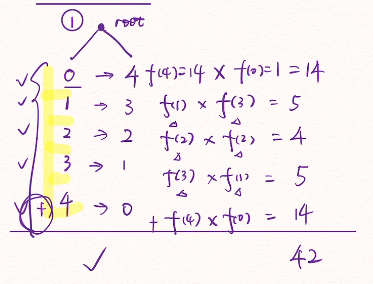 ① root
0 → 4 f(4)=14 × f(0)=1 = 14
1 → 3 f(1) × f(3) = 5
2 → 2 f(2) × f(2) = 4
3 → 1 f(3) × f(1) = 5
+) 4 → 0 + f(4) × f(0) = 14
42